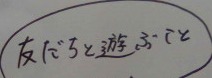 友だちと遊ぶこと